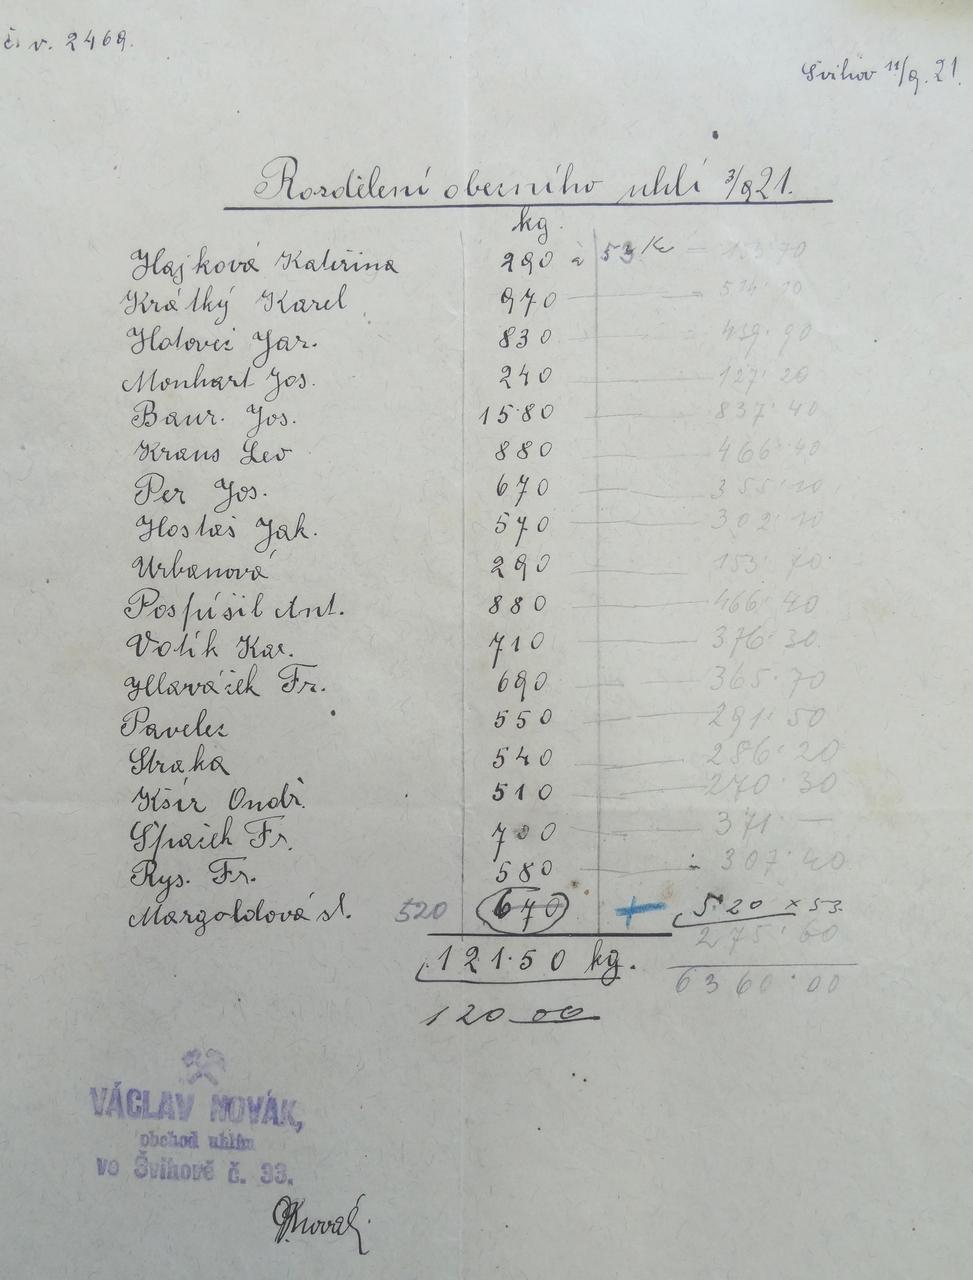 č. v. 2469.
Švihov 11/9. 21.
Rozdělení obecního uhlí 3/9 21.
kg.
Hajková Kateřina 290 à 53 Kč — 153·70
Krátký Karel 970 — 514·10
Hotovec Jar. 830 — 439·90
Monhart Jos. 240 — 127·20
Baur. Jos. 15·80 — 837·40
Kraus Leo 880 — 466·40
Per Jos. 670 — 355·10
Hostaš Jak. 570 — 302·10
Urbanová 290 — 153·70
Pospíšil Ant. 880 — 466·40
Votík Kar. 710 — 376·30
Hlaváček Fr. 690 — 365·70
Pavelec 550 — 291·50
Straka 540 — 286·20
Kšír Ondř. 510 — 270·30
Špaček Fr. 700 — 371·—
Rys. Fr. 580 — 307·40
Margoldová st. 520 670 + 520 x 53
275·60
121·50 kg. 6360·00
120 00
VÁCLAV NOVÁK,
obchod uhlím
ve Švihově č. 33.
VNovák